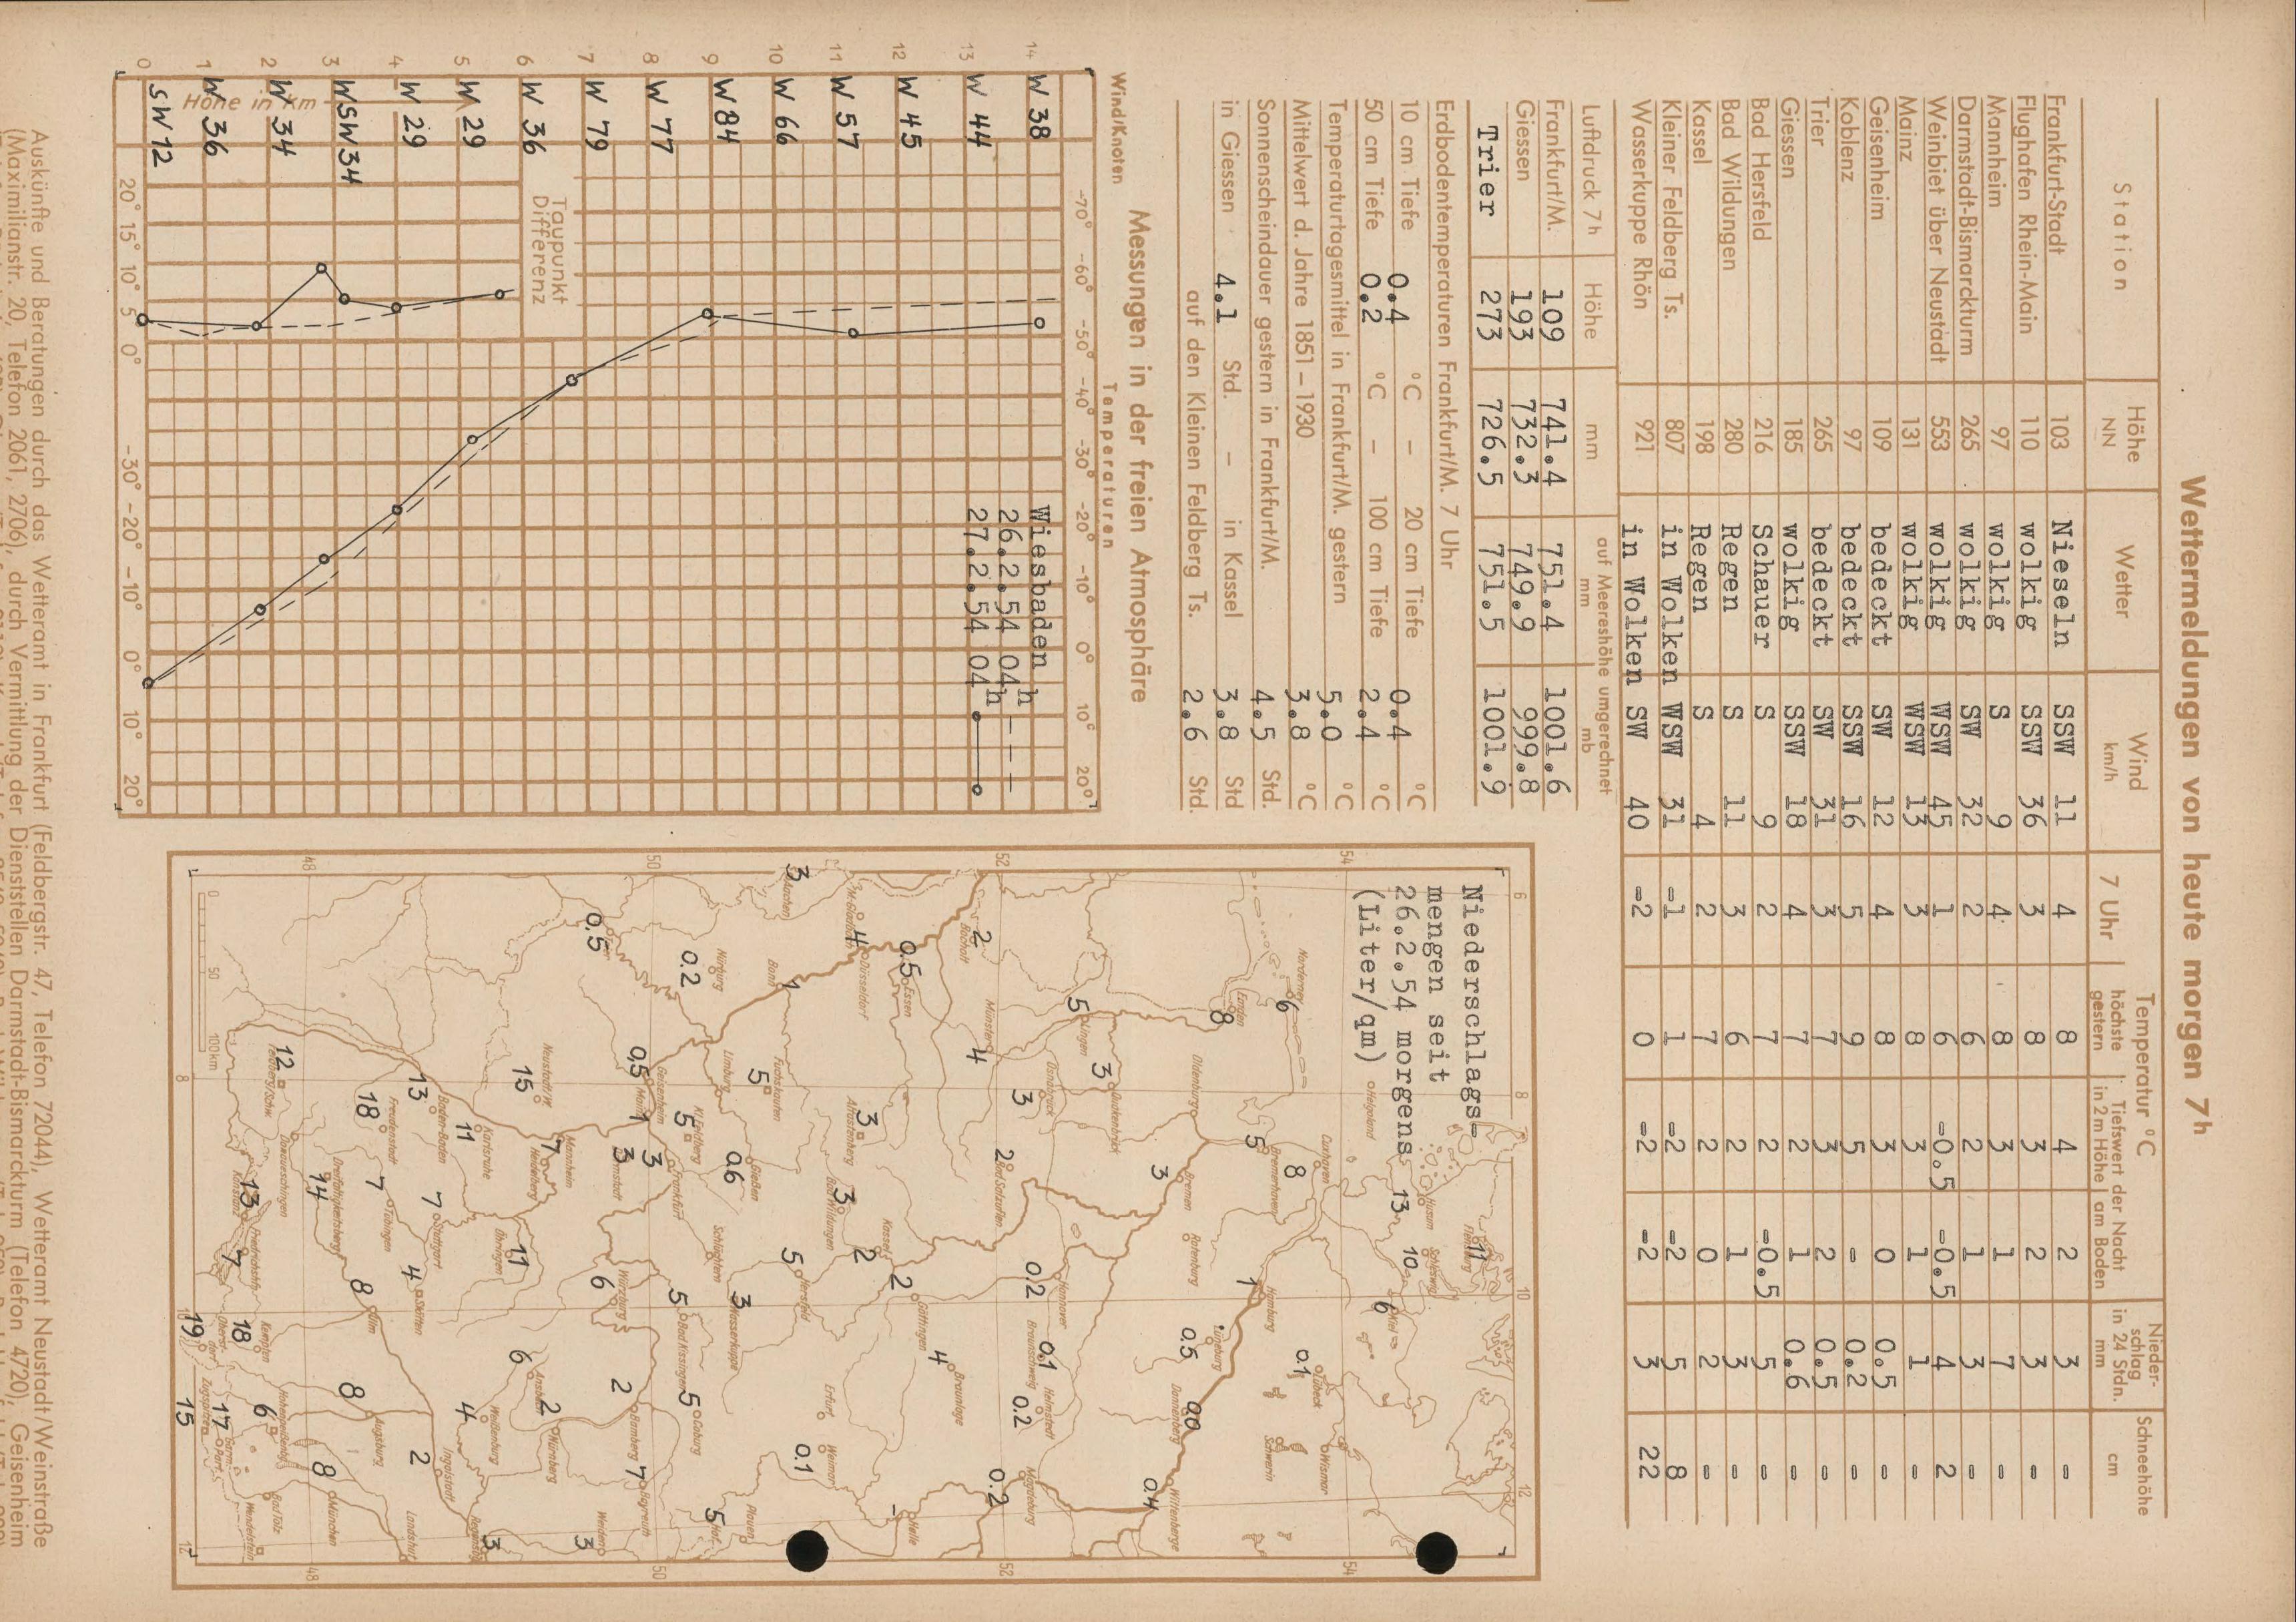 Wettermeldungen von heute morgen 7h
Station Höhe NN Wetter Wind km/h Temperatur °C Nieder-schlag in 24 Stdn. mm Schneehöhe cm
7 Uhr höchste gestern Tiefstwert der Nacht in 2m Höhe am Boden
Frankfurt-Stadt 103 Nieseln SSW 11 4 8 4 2 3 -
Flughafen Rhein-Main 110 wolkig SSW 36 3 8 3 2 3 -
Mannheim 97 wolkig S 9 4 8 3 1 7 -
Darmstadt-Bismarckturm 265 wolkig SW 32 2 6 2 1 3 -
Weinbiet über Neustadt 553 wolkig WSW 45 1 6 -0.5 -0.5 4 2
Mainz 131 wolkig WSW 13 3 8 3 1 1 -
Geisenheim 109 bedeckt SW 12 4 8 3 0 0.5 -
Koblenz 97 bedeckt SSW 16 5 9 5 - 0.2 -
Trier 265 bedeckt SW 31 3 7 3 2 0.5 -
Giessen 185 wolkig SSW 18 4 7 2 1 0.6 -
Bad Hersfeld 216 Schauer S 9 2 7 2 -0.5 5 -
Bad Wildungen 280 Regen S 11 3 6 2 1 3 -
Kassel 198 Regen S 4 2 7 2 0 2 -
Kleiner Feldberg Ts. 807 in Wolken WSW 31 -1 1 -2 -2 5 8
Wasserkuppe Rhön 921 in Wolken SW 40 -2 0 -2 -2 3 22
Luftdruck 7h Höhe mm auf Meereshöhe umgerechnet
mm mb
Frankfurt/M. 109 741.4 751.4 1001.6
Giessen 193 732.3 749.9 999.8
Trier 273 726.5 751.5 1001.9
Erdbodentemperaturen Frankfurt/M. 7 Uhr
10 cm Tiefe 0.4 °C – 20 cm Tiefe 0.4 °C
50 cm Tiefe 0.2 °C – 100 cm Tiefe 2.4 °C
Temperaturtagesmittel in Frankfurt/M. gestern 5.0 °C
Mittelwert d. Jahre 1851–1930 3.8 °C
Sonnenscheindauer gestern in Frankfurt/M. 4.5 Std.
in Giessen 4.1 Std. – in Kassel 3.8 Std
auf den Kleinen Feldberg Ts. 2.6 Std.
Messungen in der freien Atmosphäre
Wind/Knoten Temperaturen
-70° -60° -50° -40° -30° -20° -10° 0° 10° 20°
14 W 38
13 W 44
12 W 45
11 W 57
10 W 66
9 W 84
8 W 77
7 W 79
6 W 36
5 W 29
4 W 29
3 WSW 34
2 W 34
1 W 36
0 SW 12
Höhe in km
Wiesbaden
26.2.54 04h
27.2.54 04h
Taupunkt
Differenz
20° 15° 10° 5 0° -30° -20° -10° 0° 10° 20°
Niederschlags-
mengen seit
26.2.54 morgens
(Liter/qm)
6 8 10 12
54 54
52 52
50 50
48 48
8 10 12
0 50 100km
Flensburg 11
Schleswig 10
Husum 13
Kiel 6
Helgoland
Norderney 6
Emden 8
Cuxhaven 8
Bremerhaven 5
Hamburg 1
Lübeck 0.1
Wismar
Schwerin
Oldenburg
Bremen 3
Rotenburg
Lüneburg 0.5
Dannenberg 0.0
Wittenberge 0.4
Lingen 5
Quackenbrück 3
Osnabrück 3
Münster 4
Bad Salzuflen 2
Hannover 0.2
Braunschweig 0.1
Helmstedt 0.2
Magdeburg 0.2
Bocholt 2
Essen 0.5
Düsseldorf
M.Gladbach 4
Aachen 3
Bonn 1
Nürburg 0.2
Altastenberg 3
Bad Wildungen 3
Kassel 2
Göttingen 2
Braunlage 4
Halle -
Erfurt
Weimar 0.1
Hersfeld 5
Wasserkuppe 3
Fuchskauten 5
Limburg
Gießen 0.6
Schlüchtern
Kl.Feldberg 5
Frankfurt 3
Geisenheim 0.5
Mainz 1
Darmstadt 3
Trier 0.5
Bad Kissingen 5
Coburg 5
Plauen
Hof 5
Bayreuth 7
Bamberg 2
Würzburg 6
Weiden 3
Neustadt/W. 15
Mannheim 7
Heidelberg
Karlsruhe 11
Öhringen 11
Ansbach 6
Nürnberg 2
Weißenburg 4
Regensburg 3
Baden-Baden 13
Stuttgart 7
Stötten 4
Ingolstadt 2
Landshut
Freudenstadt 18
Tübingen 7
Ulm 8
Augsburg 8
München 8
Dreifaltigkeitsberg 14
Donaueschingen
Feldberg/Schw. 12
Konstanz 13
Friedrichshfn. 7
Kempten 18
Hohenpeißenberg 6
Bad Tölz
Wendelstein
Oberstdorf 19
Garm. Part. 17
Zugspitze 15
Auskünfte und Beratungen durch das Wetteramt in Frankfurt (Feldbergstr. 47, Telefon 72044), Wetteramt Neustadt/Weinstraße
(Maximilianstr. 20, Telefon 2061, 2706), durch Vermittlung der Dienststellen Darmstadt-Bismarckturm (Telefon 4720), Geisenheim